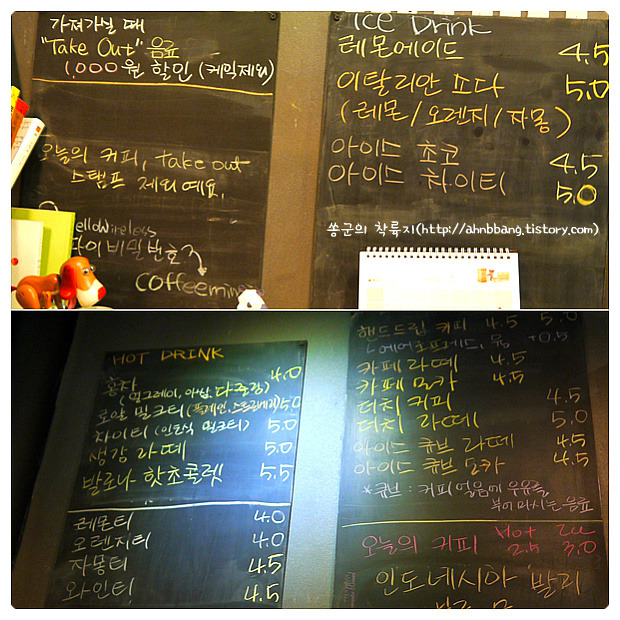 가져가실 때
"Take Out" 음료
1,000원 할인 (케익제외)
오늘의 커피, take out
스탬프 제외예요.
helloWireless
비밀번호?
coffeeming
Ice Drink
레몬에이드 4.5
이탈리안 소다 5.0
(레몬/오렌지/자몽)
아이스 초코 4.5
아이스 차이티 5.0
쏭군의 착륙지(http://ahnbbang.tistory.com)
HOT DRINK
홍차 4.0
(얼그레이, 아쌈, 다즐링)
로얄 밀크티 (플레인, 스트로베리) 5.0
차이티 (인도식 밀크티) 5.0
생강 라떼 5.0
발로나 핫초콜렛 5.5
레몬티 4.0
오렌지티 4.0
자몽티 4.5
와인티 4.5
핸드드립 커피 4.5 5.0
ㄴ에어로프레스, +0.5
카페 라떼 4.5
카페 모카 4.5
더치 커피 4.5
더치 라떼 5.0
아이스 큐브 라떼 4.5
아이스 큐브 모카 4.5
*큐브 : 커피 얼음에 우유를
부어 마시는 음료
Hot Ice
오늘의 커피 2.5 3.0
인도네시아 '발리